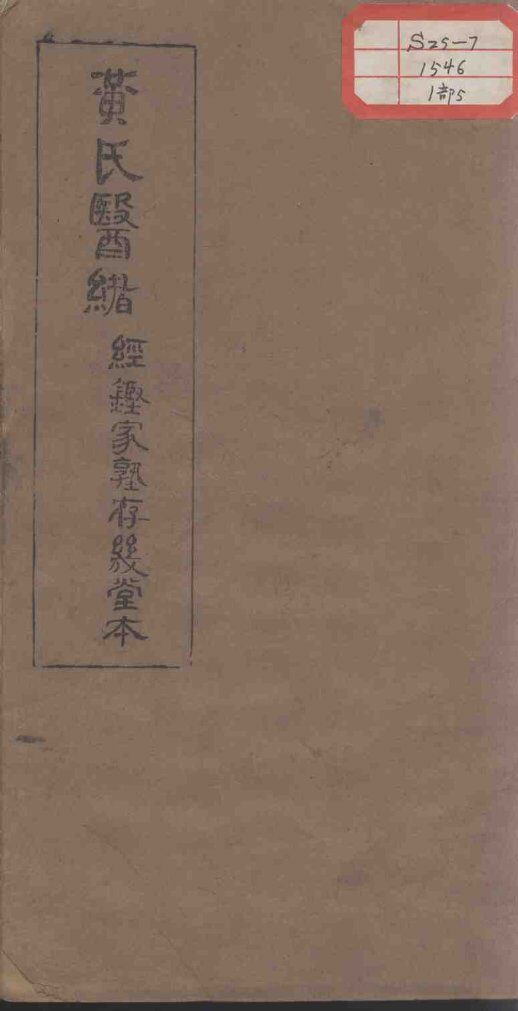 黃氏醫緒
經鏗家塾存幾堂本
S25-7
1546
1部5